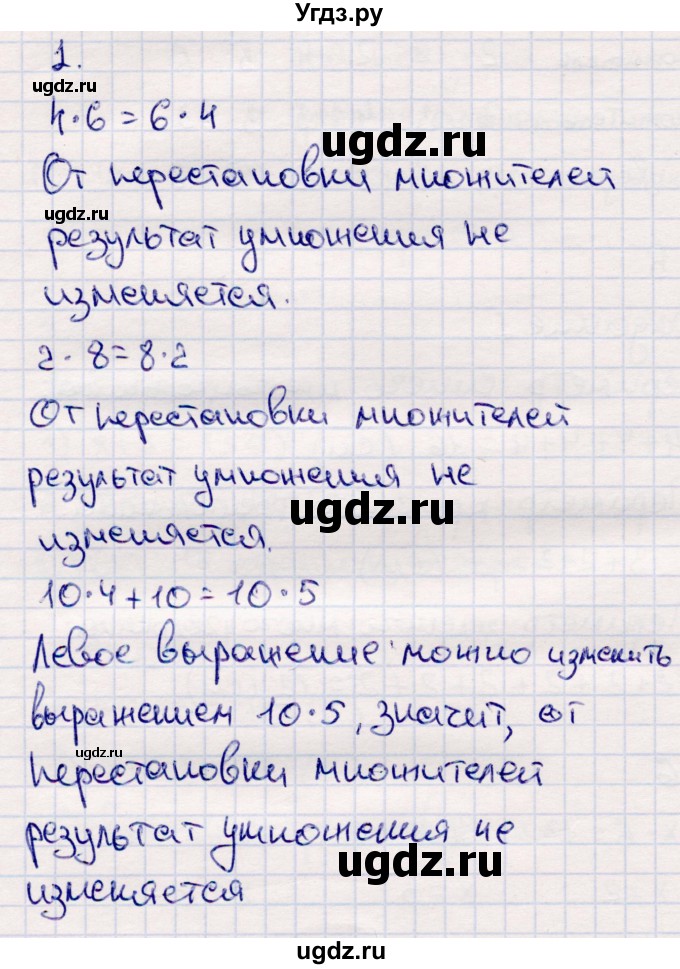 Угдз.ру
1.
ugdz.ru
4·6=6·4
ugdz.ru
От перестановки множителей
ugdz.ru
результат умножения не
изменяется.
ugdz.ru
2·8=8·2
От перестановки множителей
результат умножения не
ugdz.ru
изменяется.
10·4+10=10·5
ugdz.ru
Левое выражение можно изменить
выражением 10·5, значит, от
ugdz.ru
перестановки множителей
результат умножения не
ugdz.ru
изменяется
ugdz.ru